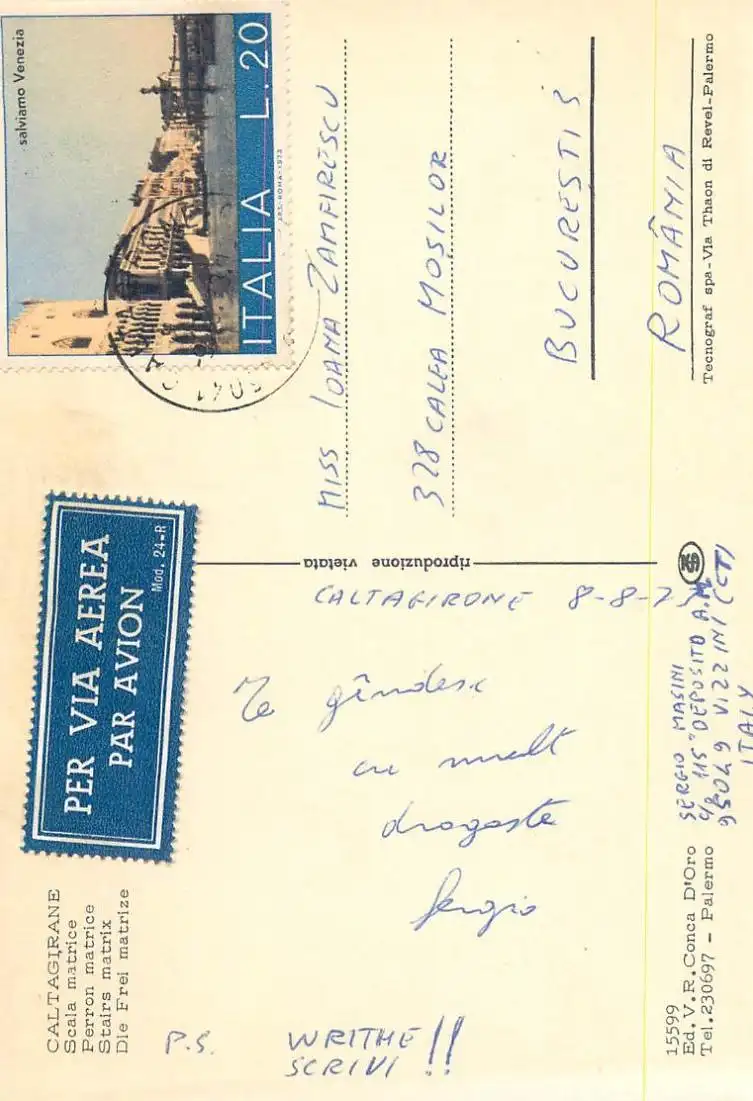 CALTAGIRANE
Scala matrice
Perron matrice
Stairs matrix
Die Frei matrize
PER VIA AEREA
PAR AVION
Mod. 24-R
salviamo Venezia
ITALIA L. 20
I.P.S.-ROMA-1973
riproduzione vietata
CALTAGIRONE 8-8-73
Te gîndesc
cu mult
dragoste
Sergio
P.S. WRITHE
SCRIVI !!
MISS IOANA ZAMFIRESCU
328 CALEA MOȘILOR
BUCUREȘTI 3
ROMÂNIA
SERGIO MASINI
115° DEPOSITO A.M.
95049 VIZZINI (CT)
ITALY
15599
Ed. V.R. Conca D'Oro
Tel. 230697 - Palermo
Tecnograf spa-Via Thaon di Revel-Palermo